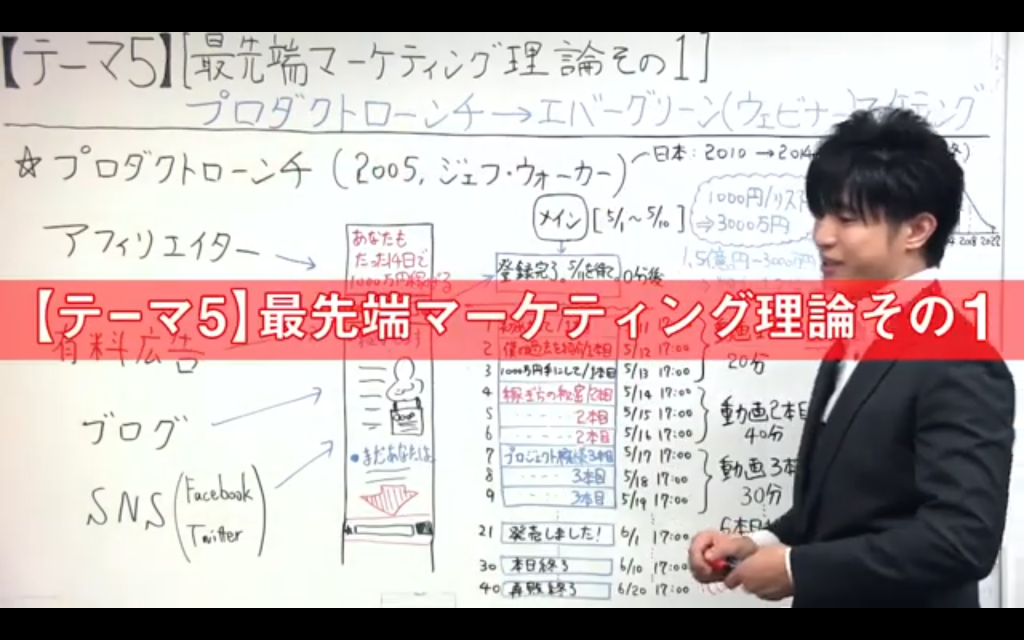 【テーマ5】[最先端マーケティング理論その1]
プロダクトローンチ→エバーグリーン(ウェビナー)マーケティング
☆プロダクトローンチ(2005,ジェフ・ウォーカー)
日本:2010→2014
メイン [5/1〜5/10]
1000円/リスト
⇒3000万円
1.5億円-3000万円
アフィリエイター
あなたも
たった14日で
1000万円稼げる
登録完了。5/11を待て。0分後
【テーマ5】最先端マーケティング理論その1
有料広告
2 僕の過去を紹介/1本目 5/12 17:00
20分
3 1000万円手にして/1本目 5/13 17:00
4 稼ぎちの秘密/2本目 5/14 17:00
5 ・・・・ 2本目 5/15 17:00
動画2本目
40分
6 ・・・・ 2本目 5/16 17:00
7 5/17 17:00
8 ・・・・ 3本目 5/18 17:00
9 ・・・・ 3本目 5/19 17:00
動画3本
30分
ブログ
・まだあなたは
SNS(Facebook
Twitter)
21 発売しました! 6/1 17:00
30 本日終了 6/10 17:00
40 再販終了 6/20 17:00
6本目
2018 2022